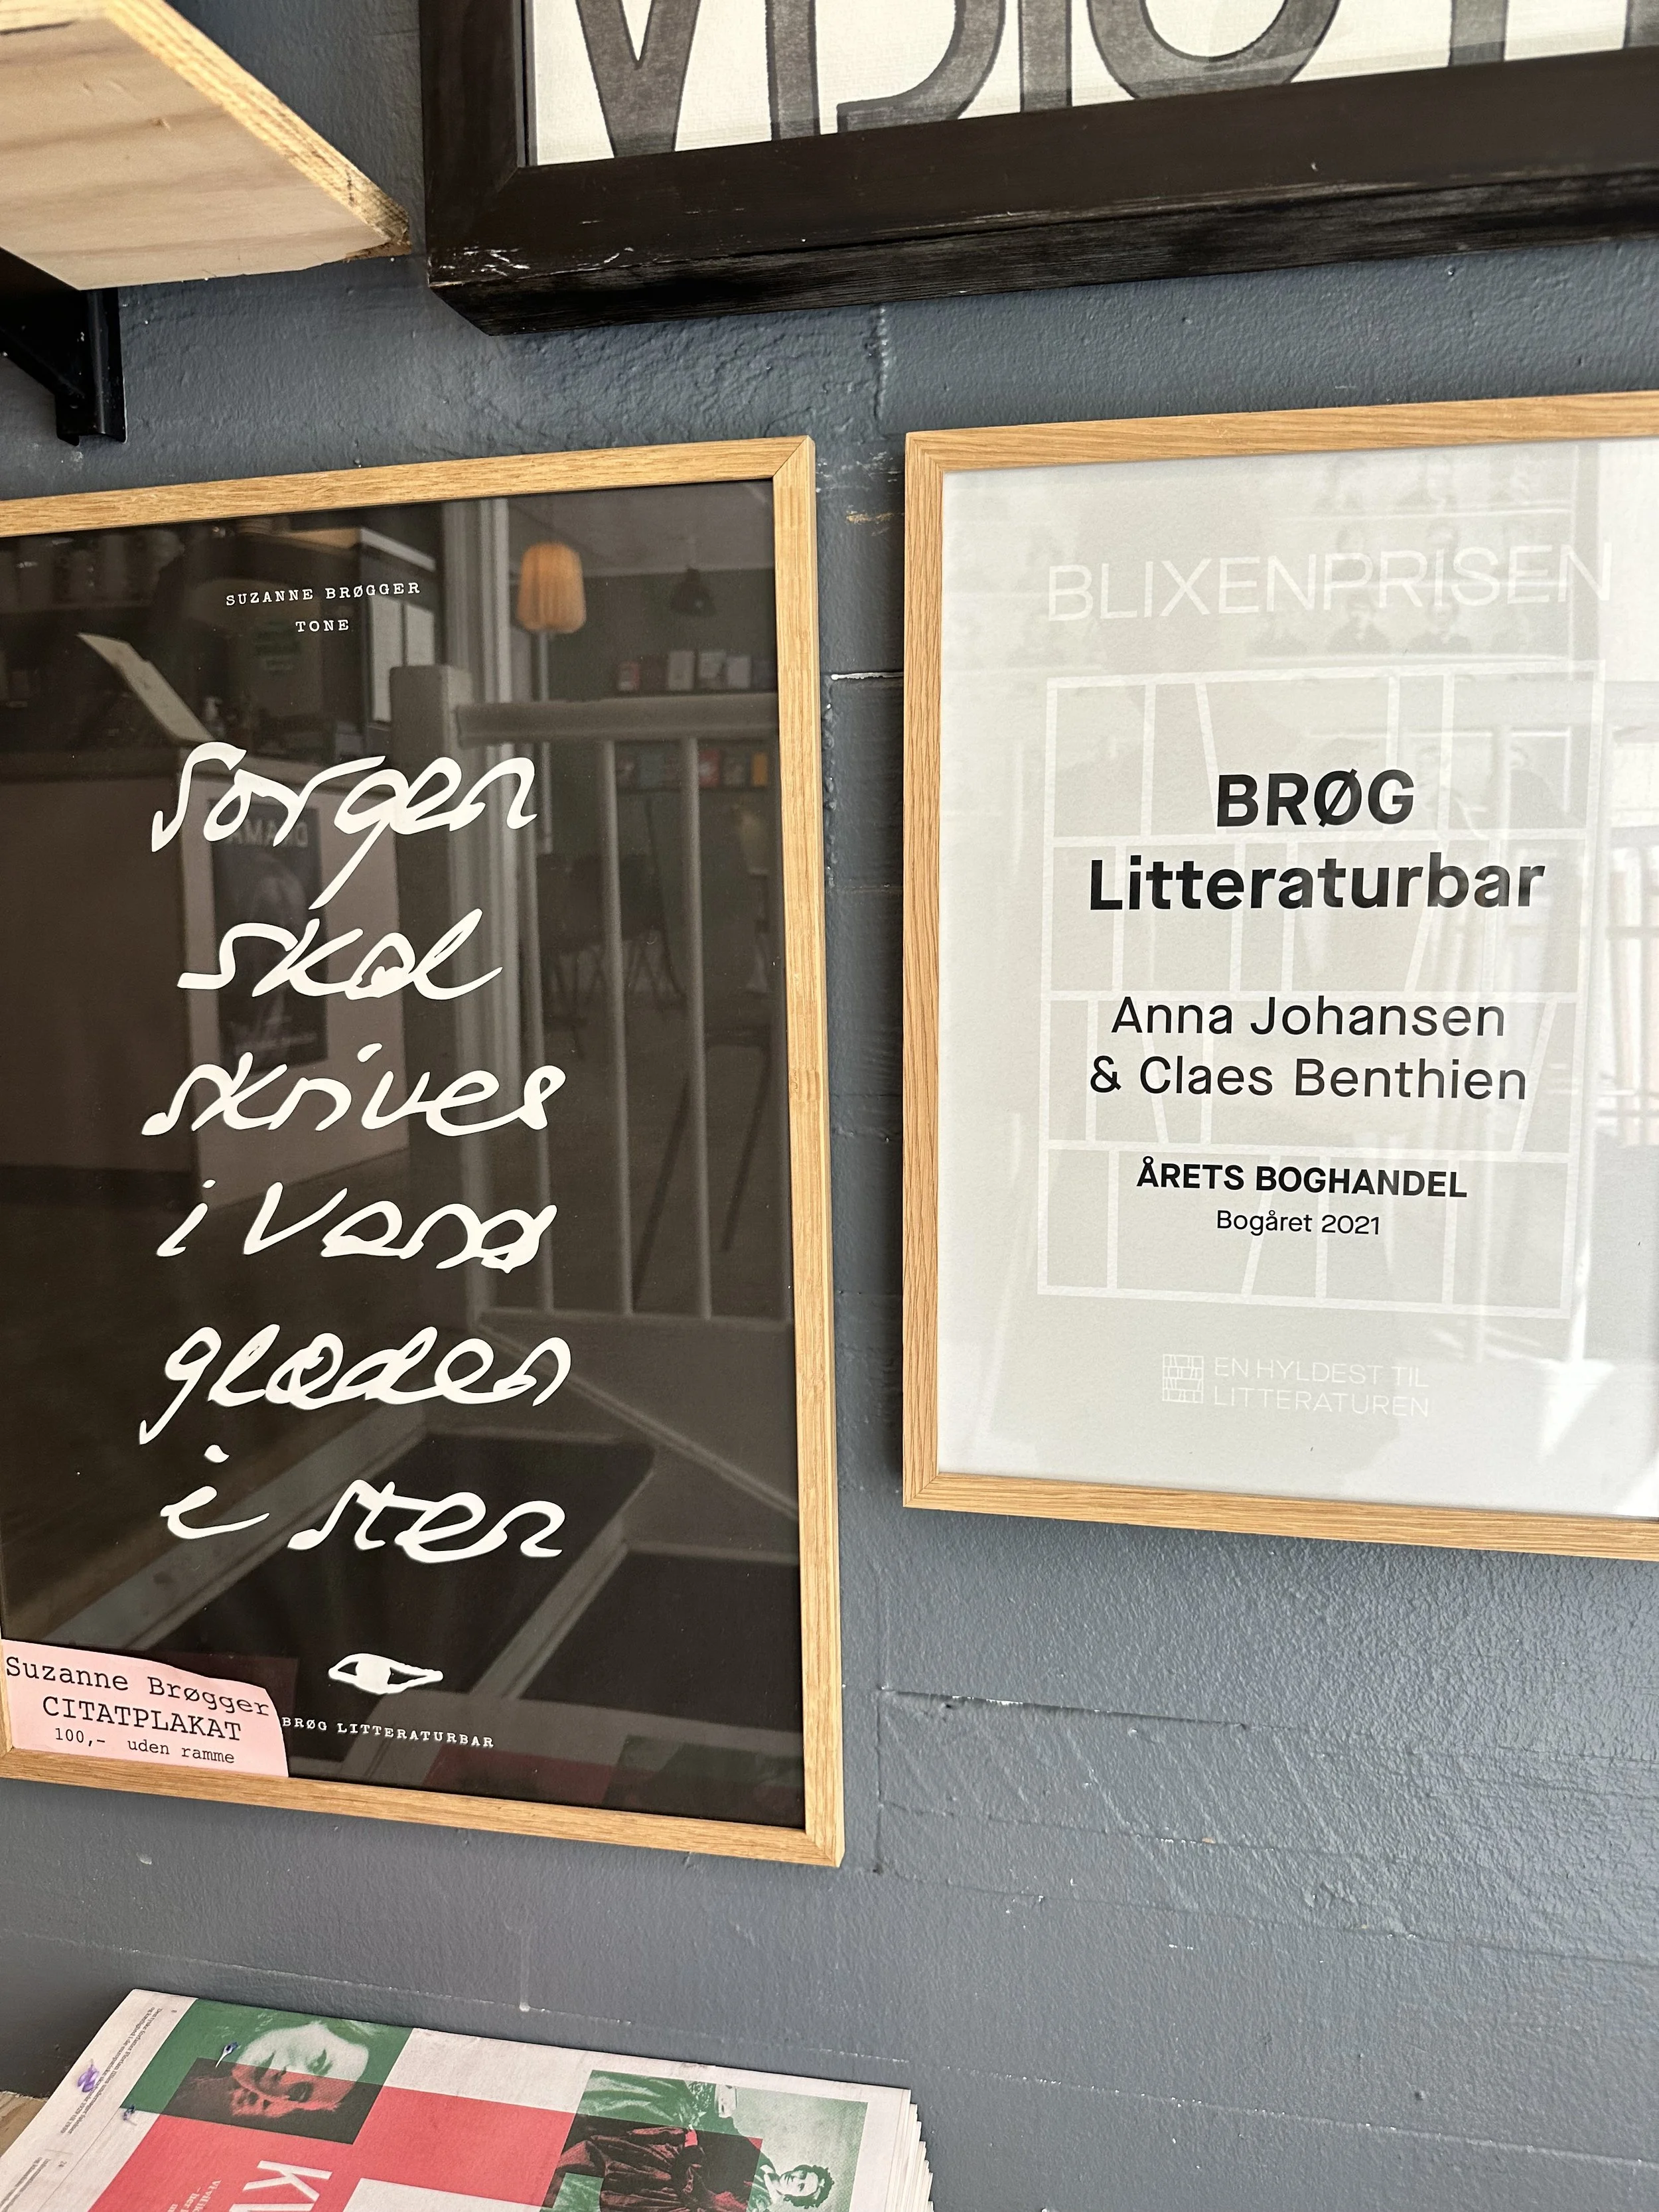 SUZANNE BRØGGER
TONE
Sorgen
skal
skrives
i Vand
glæden
i sten
BRØG LITTERATURBAR
Suzanne Brøgger
CITATPLAKAT
100,- uden ramme
BLIXENPRISEN
BRØG
Litteraturbar
Anna Johansen
& Claes Benthien
ÅRETS BOGHANDEL
Bogåret 2021
EN HYLDEST TIL
LITTERATUREN